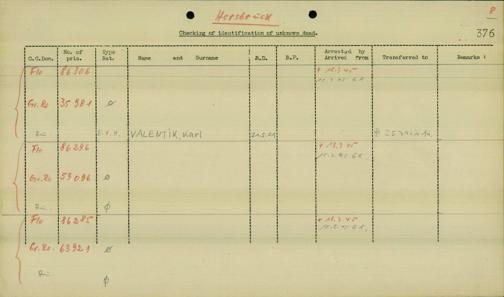 8
Hersbruck
Checking of identification of unknown dead. 376
C.C.Don. No. of pris. Type Nat. Name and Surname B.D. B.P. Arrested by Arrived from Transferred to Remarks
Flo 86306 + 18.3.45
Gr.Ro 35981 ø
VALENTIK, Karl
Flo 86296 + 18.3.45
Gr.Ro 53096 ø
ø
Flo 86285 + 18.3.45
Gr.Ro. 63921 ø
ø